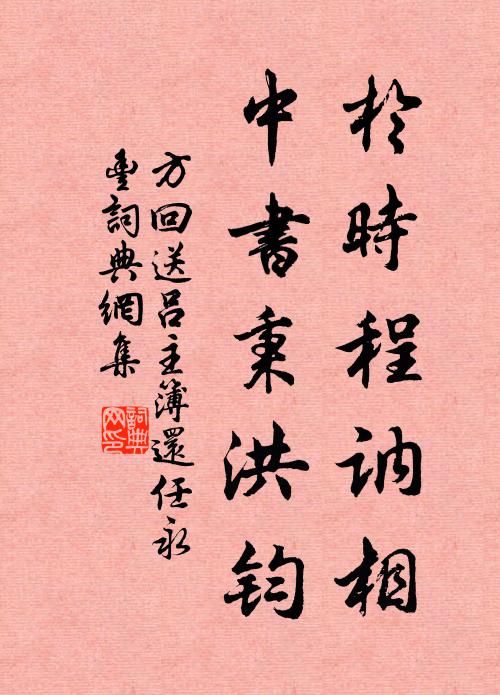 於時程訥相
中書秉洪鈞
方回送呂主簿還任永
豐詞典網集
詞典
网印